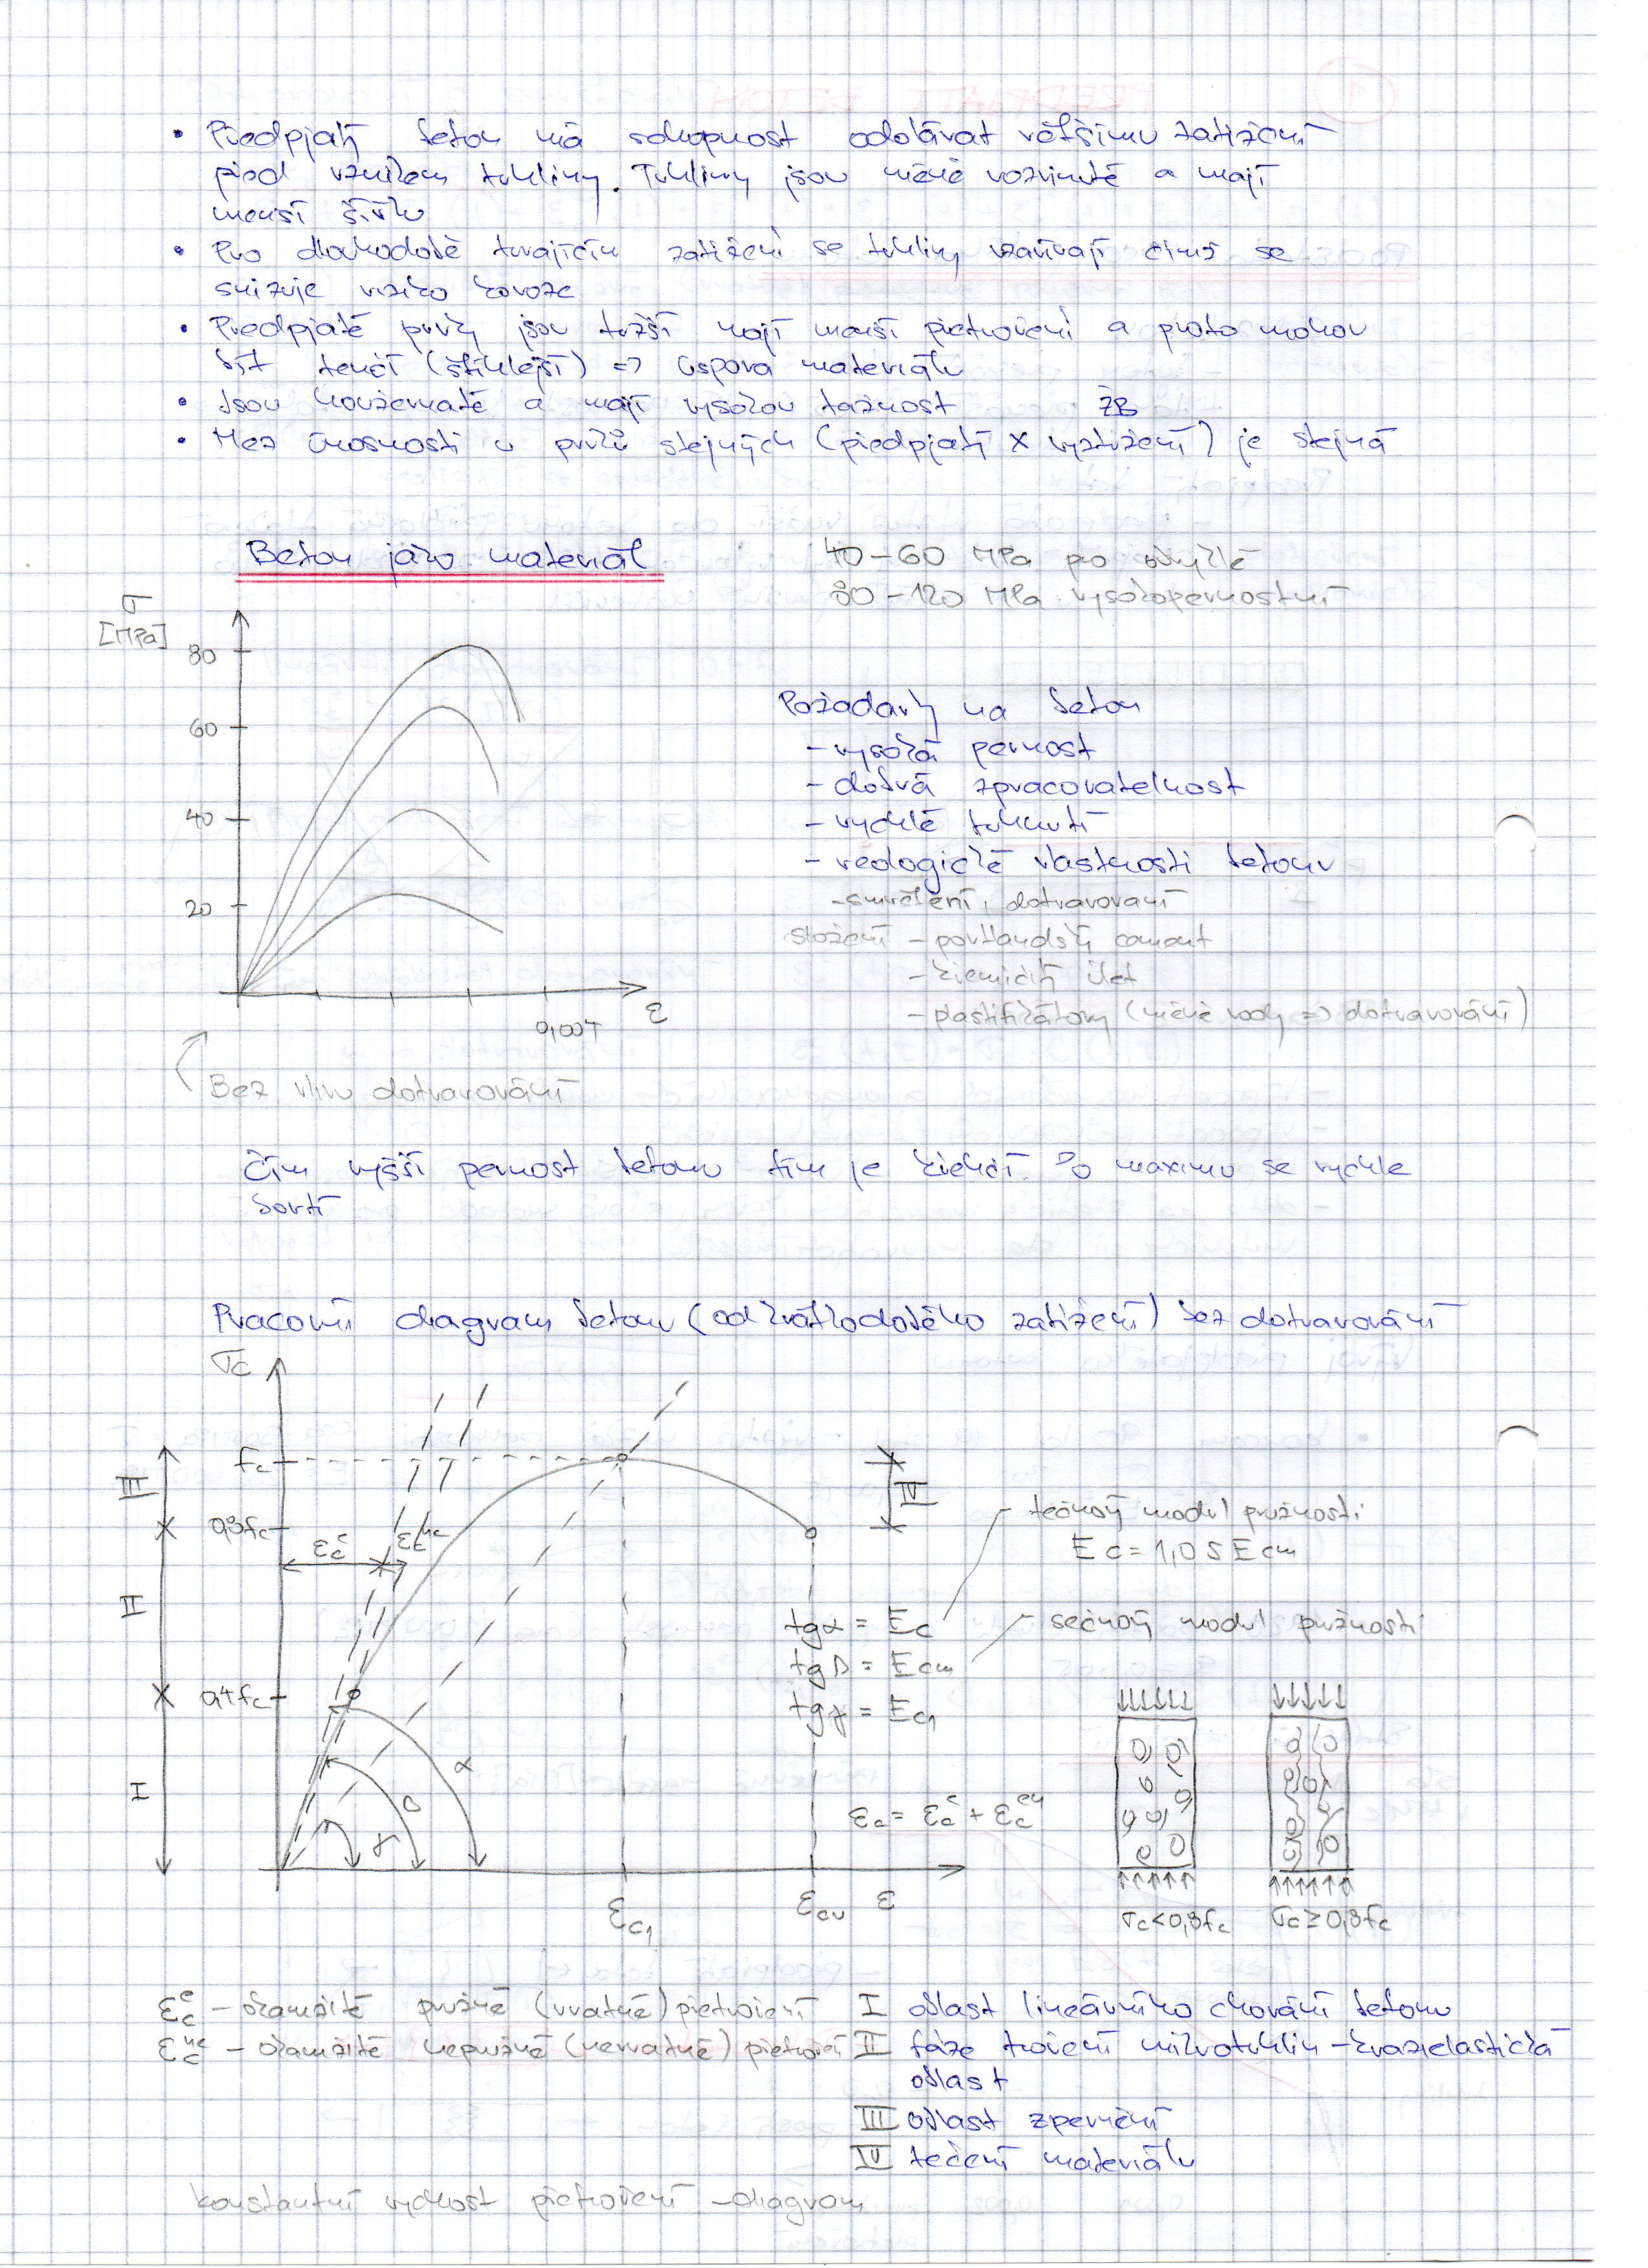 • Předpjatý beton má schopnost odolávat většímu zatížení
před vznikem trhliny. Trhliny jsou méně rozvinuté a mají
menší šířku
• Pro dlouhodobě trvajícím zatížení se trhliny uzavírají čímž se
snižuje riziko koroze
• Předpjaté prvky jsou tužší mají menší přetvoření a proto mohou
být tenčí (štíhlejší) => úspora materiálu
• Jsou houževnaté a mají vysokou tažnost
ŽB
• Mez únosnosti u prvků stejných (předpjatý x vyztužení) je stejná
Beton jako materiál
40-60 MPa pro obvyklé
80-120 MPa vysokopevnostní
σ
[MPa]
80
60
40
20
0,004
ε
Bez vlivu dotvarování
Požadavky na beton
- vysoká pevnost
- dobrá zpracovatelnost
- rychlé tuhnutí
- reologické vlastnosti betonu
- smrštění, dotvarovaní
složení - portlandský cement
- křemičitý úlet
- plastifikátory (méně vody => dotvarování)
Čím vyšší pevnost betonu tím je křehčí. Po maximu se rychle
bortí
Pracovní diagram betonu (od krátkodobého zatížení) bez dotvarování
σc
fc
III
IV
0,8fc
εc^e
εc^ne
II
0,4fc
I
α
β
γ
εc1
εcu
ε
tečnový modul pružnosti
Ec = 1,05 Ecm
tgα = Ec
sečnový modul pružnosti
tgβ = Ecm
tgγ = Ec1
εc = εc^e + εc^en
σc<0,8fc
σc≥0,8fc
εc^e - okamžité pružné (vratné) přetvoření
εc^ne - okamžité nepružné (nevratné) přetvoření
I oblast lineárního chování betonu
II fáze tvoření mikrotrhlin - kvazielastická
oblast
III oblast zpevnění
IV tečení materiálu
konstantní rychlost přetvoření - diagram